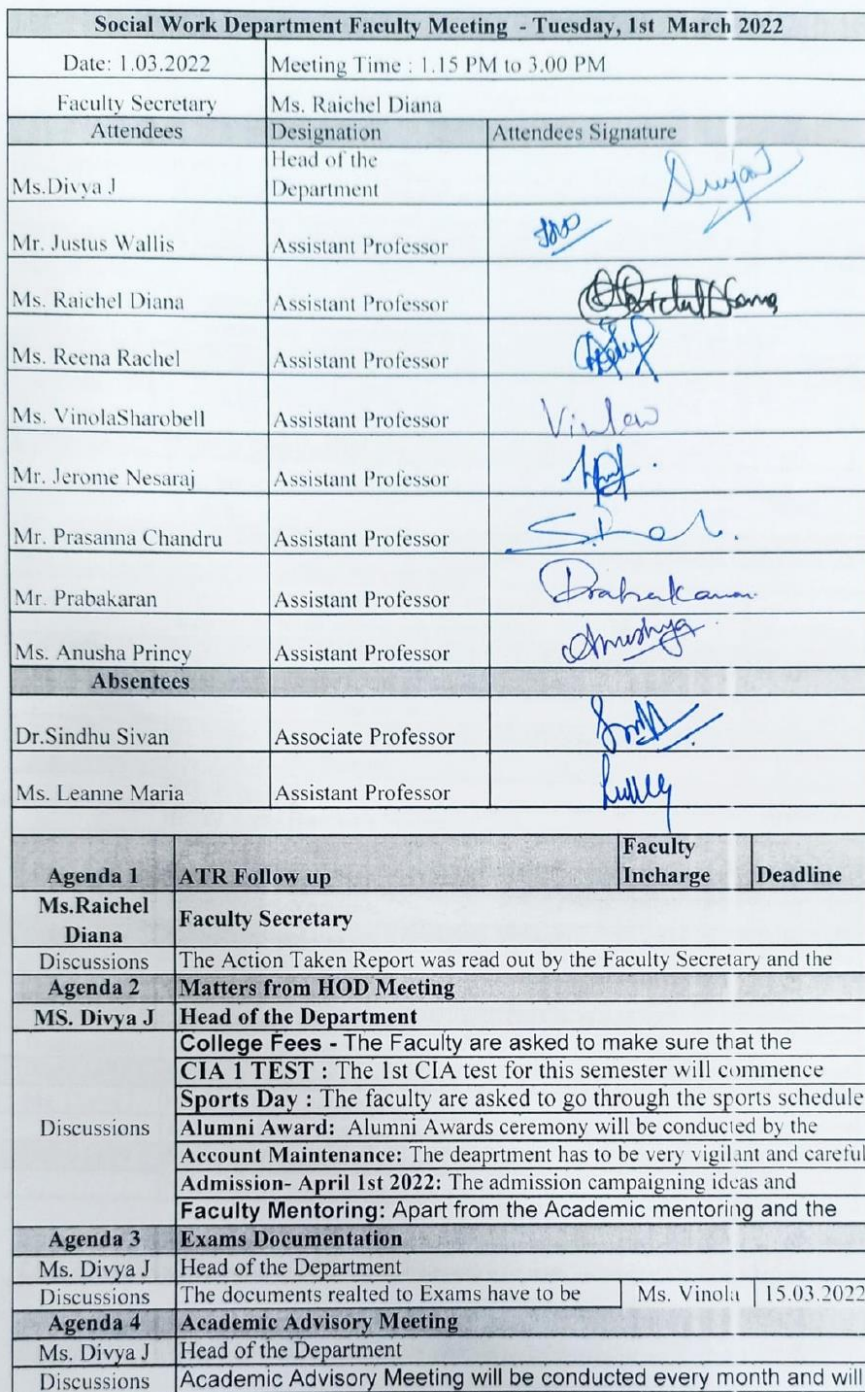 Social Work Department Faculty Meeting - Tuesday, 1st March 2022
Date: 1.03.2022 Meeting Time : 1.15 PM to 3.00 PM
Faculty Secretary Ms. Raichel Diana
Attendees Designation Attendees Signature
Ms.Divya J Head of the Department DivyaJ
Mr. Justus Wallis Assistant Professor
Ms. Raichel Diana Assistant Professor Raichel Diana
Ms. Reena Rachel Assistant Professor
Ms. VinolaSharobell Assistant Professor
Mr. Jerome Nesaraj Assistant Professor
Mr. Prasanna Chandru Assistant Professor
Mr. Prabakaran Assistant Professor Prabakaran
Ms. Anusha Princy Assistant Professor
Absentees
Dr.Sindhu Sivan Associate Professor
Ms. Leanne Maria Assistant Professor
Agenda 1 ATR Follow up Faculty Incharge Deadline
Ms.Raichel Diana Faculty Secretary
Discussions The Action Taken Report was read out by the Faculty Secretary and the
Agenda 2 Matters from HOD Meeting
MS. Divya J Head of the Department
College Fees - The Faculty are asked to make sure that the
CIA 1 TEST : The 1st CIA test for this semester will commence
Sports Day : The faculty are asked to go through the sports schedule
Discussions Alumni Award: Alumni Awards ceremony will be conducted by the
Account Maintenance: The deaprtment has to be very vigilant and careful
Admission- April 1st 2022: The admission campaigning ideas and
Faculty Mentoring: Apart from the Academic mentoring and the
Agenda 3 Exams Documentation
Ms. Divya J Head of the Department
Discussions The documents realted to Exams have to be Ms. Vinola 15.03.2022
Agenda 4 Academic Advisory Meeting
Ms. Divya J Head of the Department
Discussions Academic Advisory Meeting will be conducted every month and will